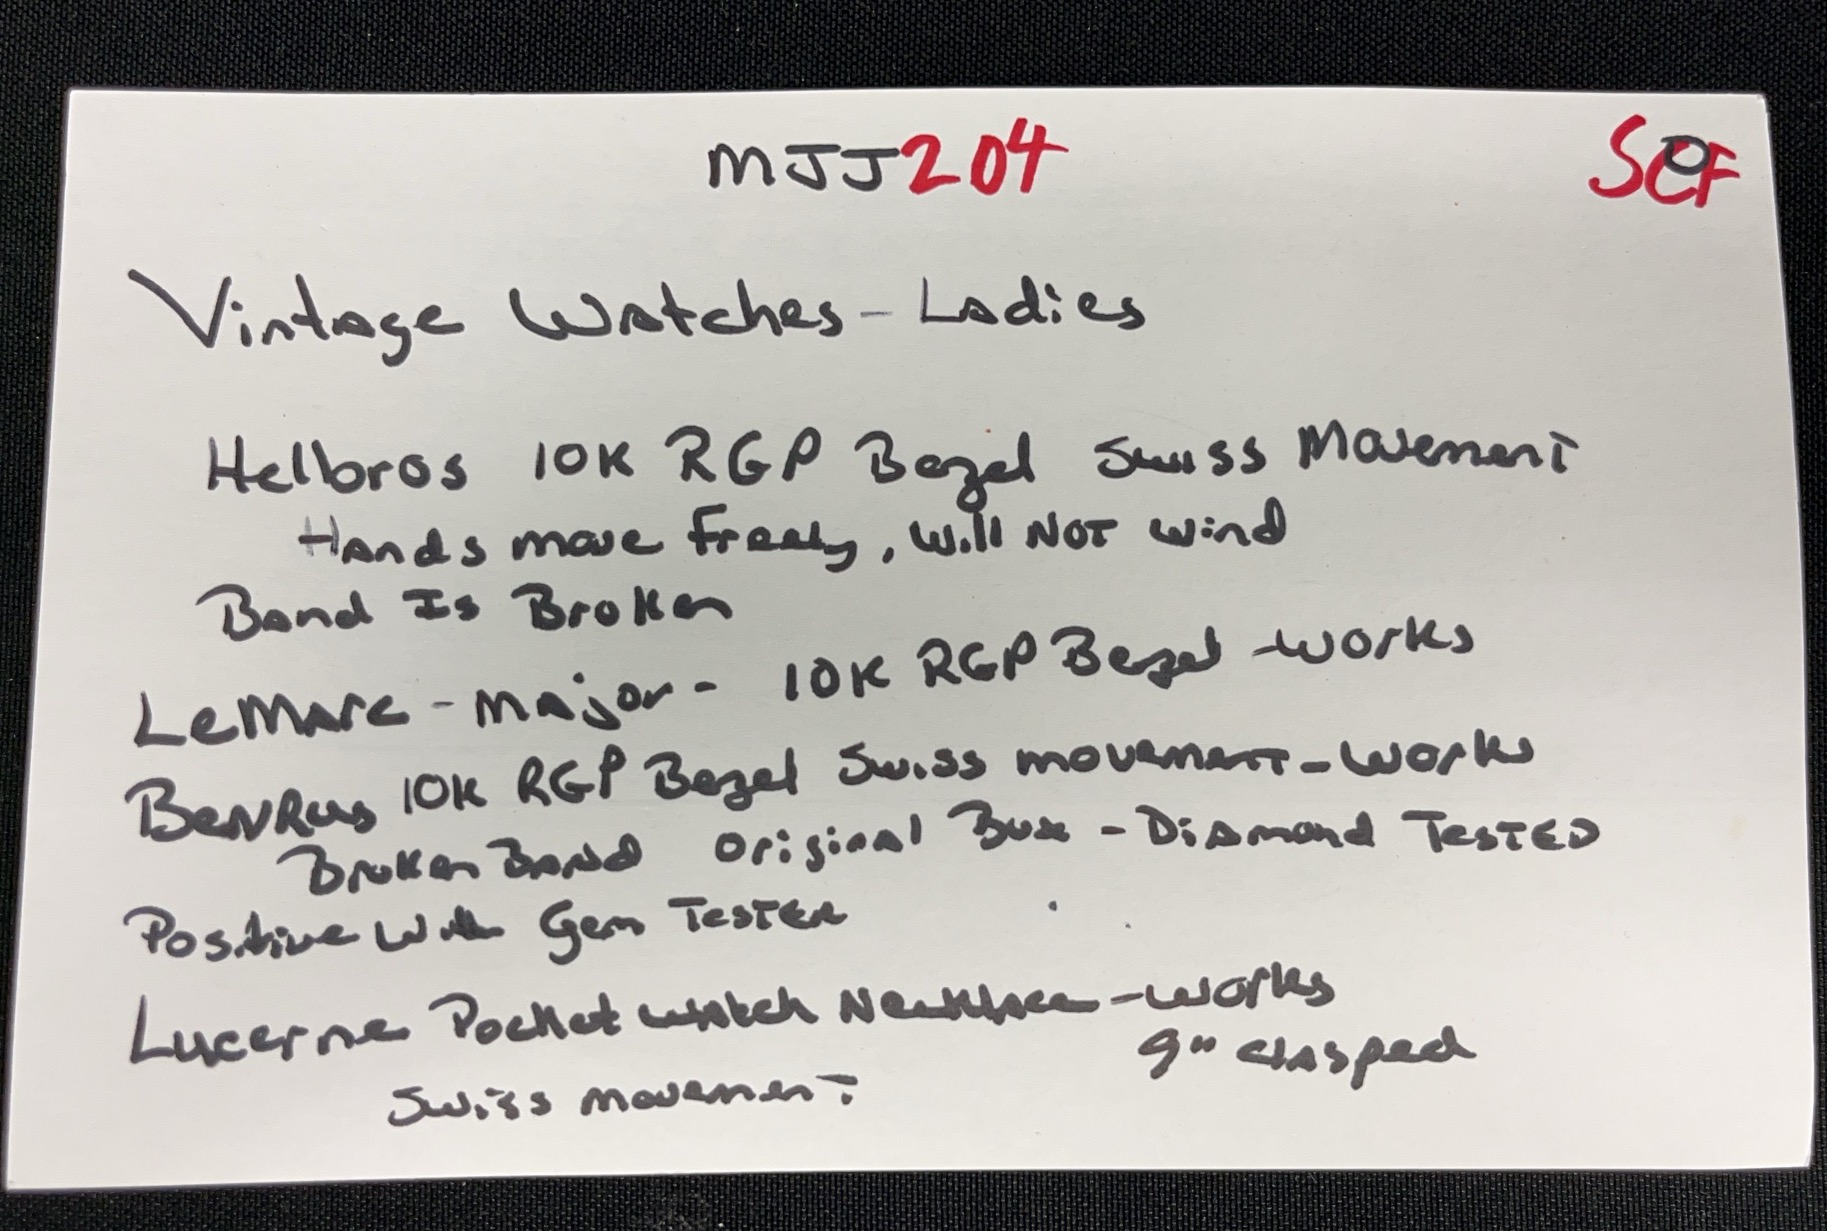 MJJ204
SCF
Vintage Watches - Ladies
Hellbros 10K RGP Bezel Swiss Movement
Hands move freely, will NOT wind
Band Is Broken
LeMarc - Major - 10K RGP Bezel - works
BenRus 10K RGP Bezel Swiss movement - works
Broken Band Original Box - Diamond TESTED
Positive with Gem TESTER
Lucerne Pocket watch Necklace - works
9" clasped
Swiss movement